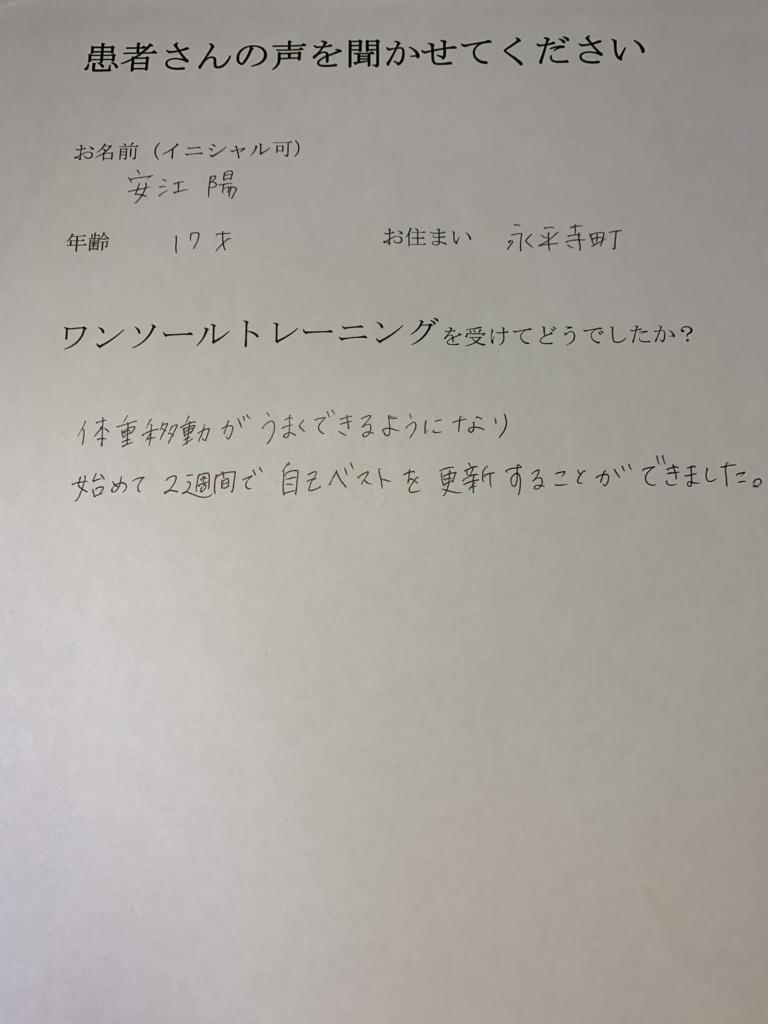 患者さんの声を聞かせてください
お名前（イニシャル可）
安江 陽
年齢 17才 お住まい 永平寺町
ワンソールトレーニングを受けてどうでしたか？
体重移動がうまくできるようになり
始めて2週間で自己ベストを更新することができました。